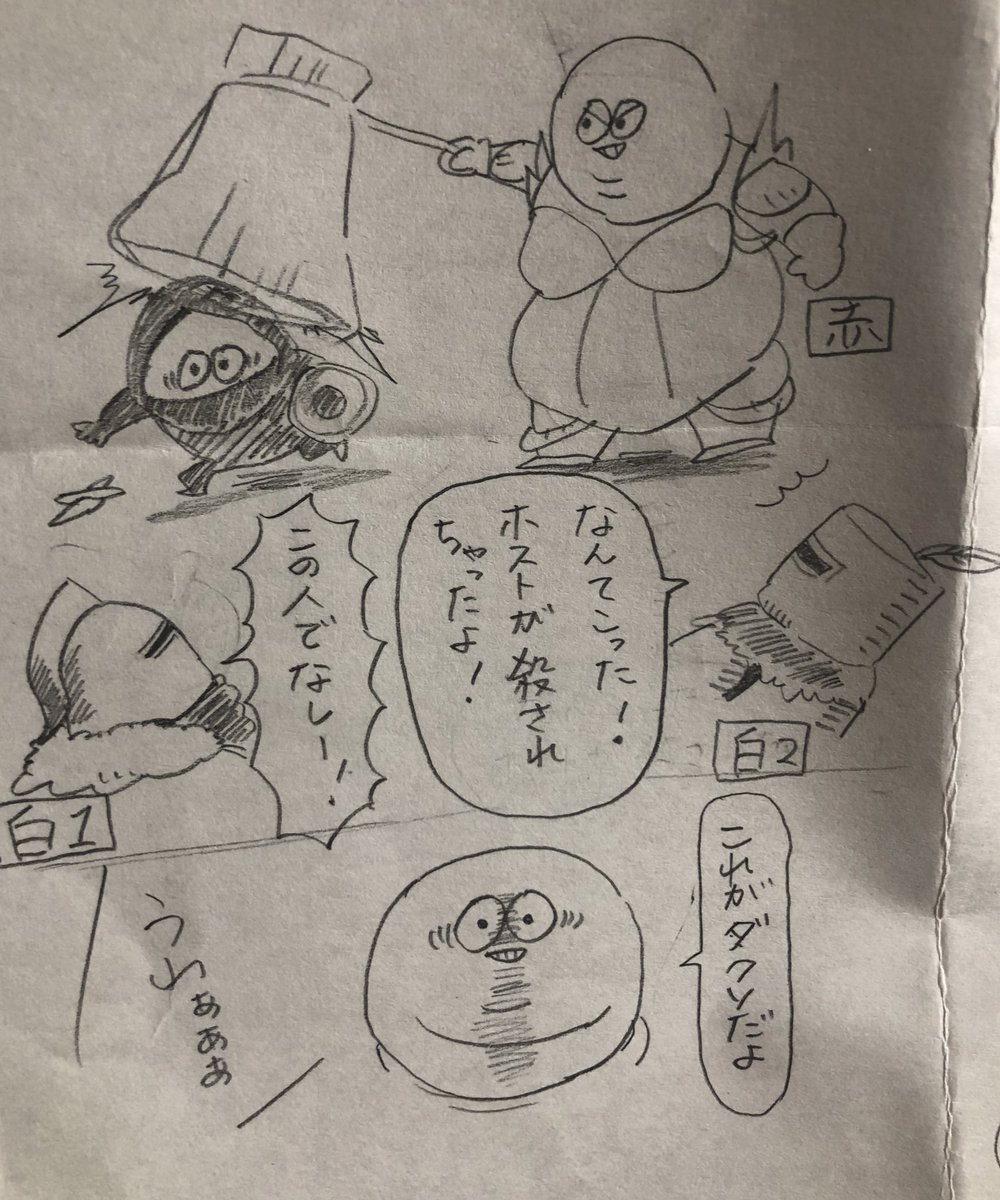 赤
なんてこった！
ホストが殺され
ちゃったよ！
白2
この人でなしー！
白1
これがダクソだよ
うわぁぁぁ